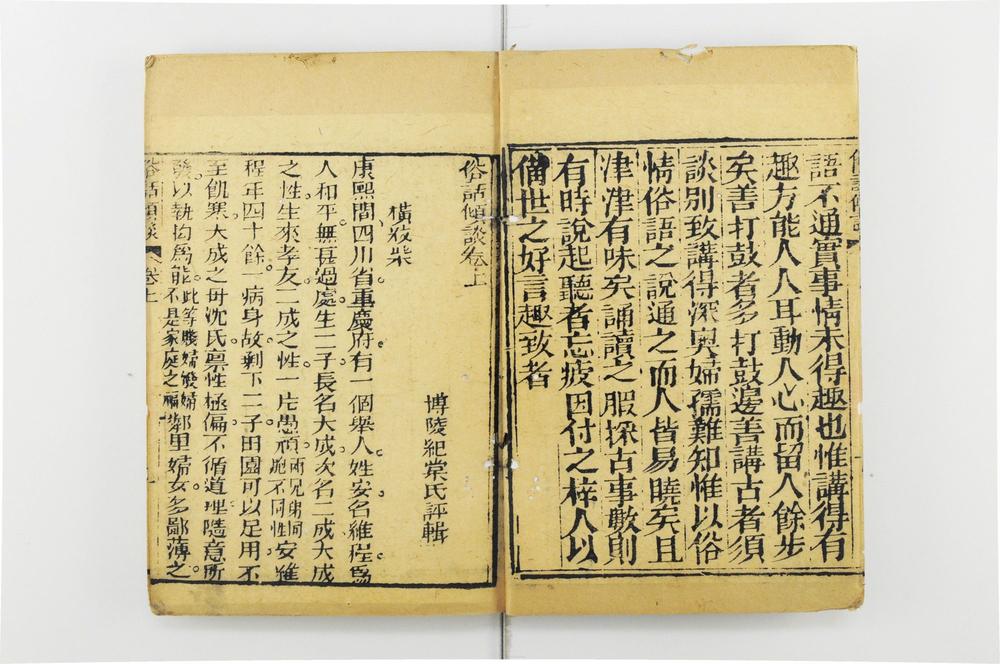 語不通實事情未得趣也惟講得有
趣方能人人耳動人心而留人餘步
矣善打鼓者多打鼓邊善講古者須
談別致講得深奧婦孺難知惟以俗
情俗語之說通之而人皆易曉矣且
津津有味矣誦讀之暇採古事數則
有時說起聽者忘疲因付之梓人以
備世之好言趣致者
俗話傾談卷上
博陵紀棠氏評輯
橫紋柴
康熙間四川省重慶府有一個舉人姓安名維程爲
人和平無甚過處生二子長名大成次名二成大成
之性生來孝友二成之性一片愚頑兩兄弟同胞不同性安維
程年四十餘一病身故剩下二子田園可以足用不
至飢寒大成之母沈氏禀性極偏不循道理隨意所
發以執拘爲能此等惡婦不是家庭之福鄰里婦女多鄙薄之
俗話傾談 卷上